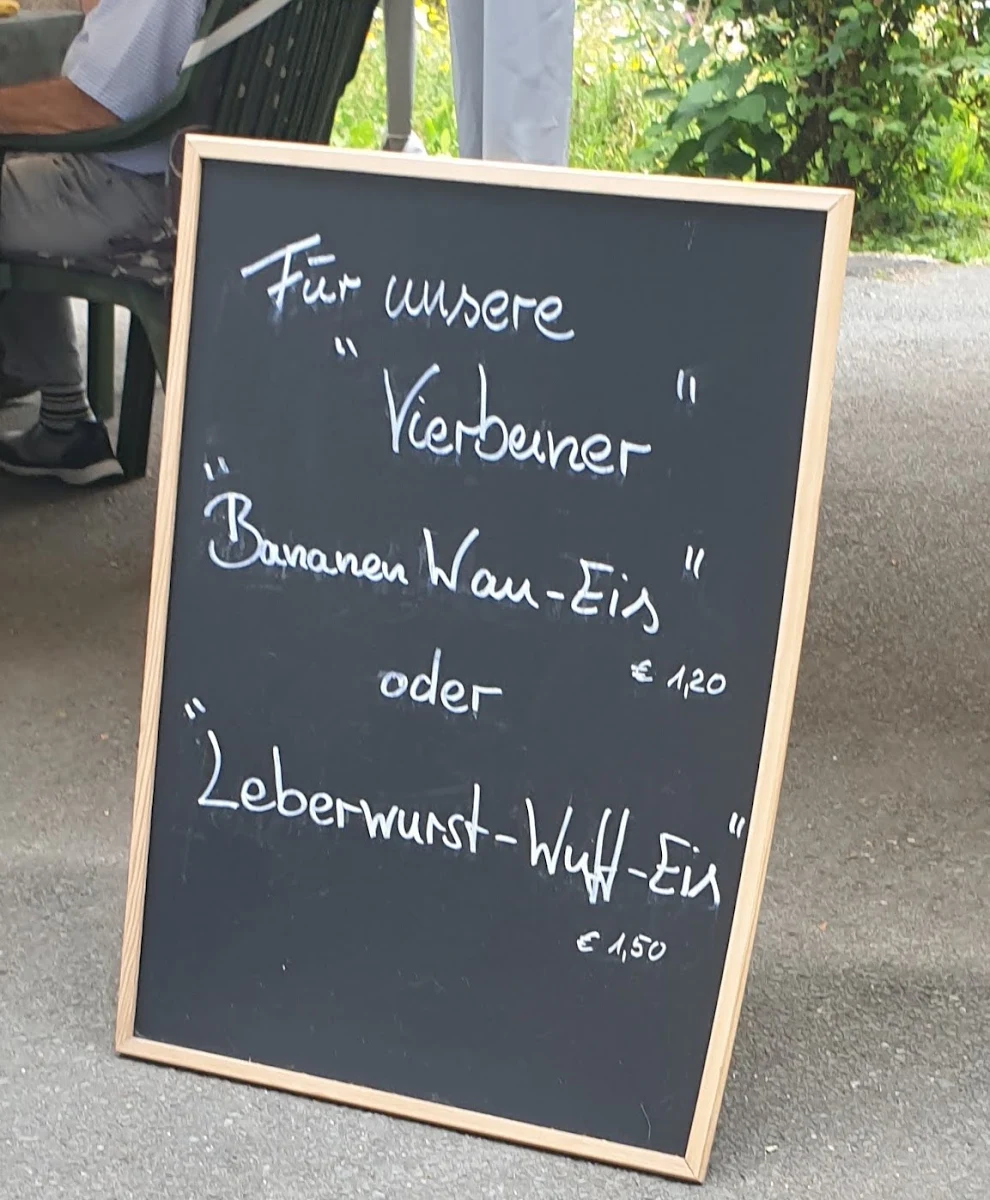 Für unsere
"Vierbeiner"
"Bananen Wau-Eis"
€ 1,20
oder
"Leberwurst-Wuff-Eis"
€ 1,50